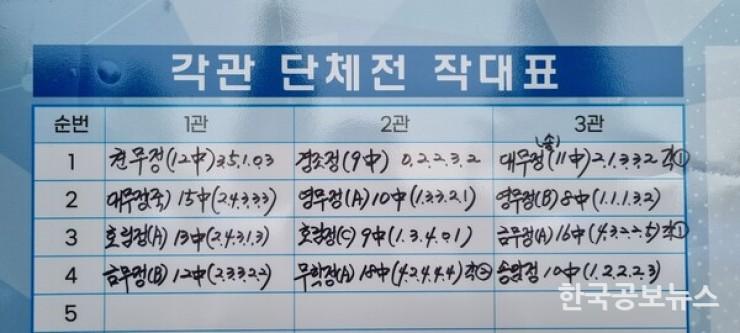 각관 단체전 작대표
순번 1관 2관 3관
(솔)
1 권무정(12中) 3.5.1.0.3 경조정(9中) 0.2.2.3.2 대무정(11中) 2.1.3.3.2 각①
2 대무정(죽) 15中(2.4.3.3.3) 영무정(A) 10中(1.3.3.2.1) 영무정(B) 8中(1.1.1.3.2)
3 호림정(A) 13中(2.4.3.1.3) 호림정(C) 9中(1.3.4.0.1) 금무정(A) 16中(4.3.2.2.5) 각①
4 금무정(B) 12中(2.3.3.2.2) 무학정(A) 18中(4.2.4.4.4) 각② 송암정 10中(1.2.2.2.3)
5
한국공보뉴스